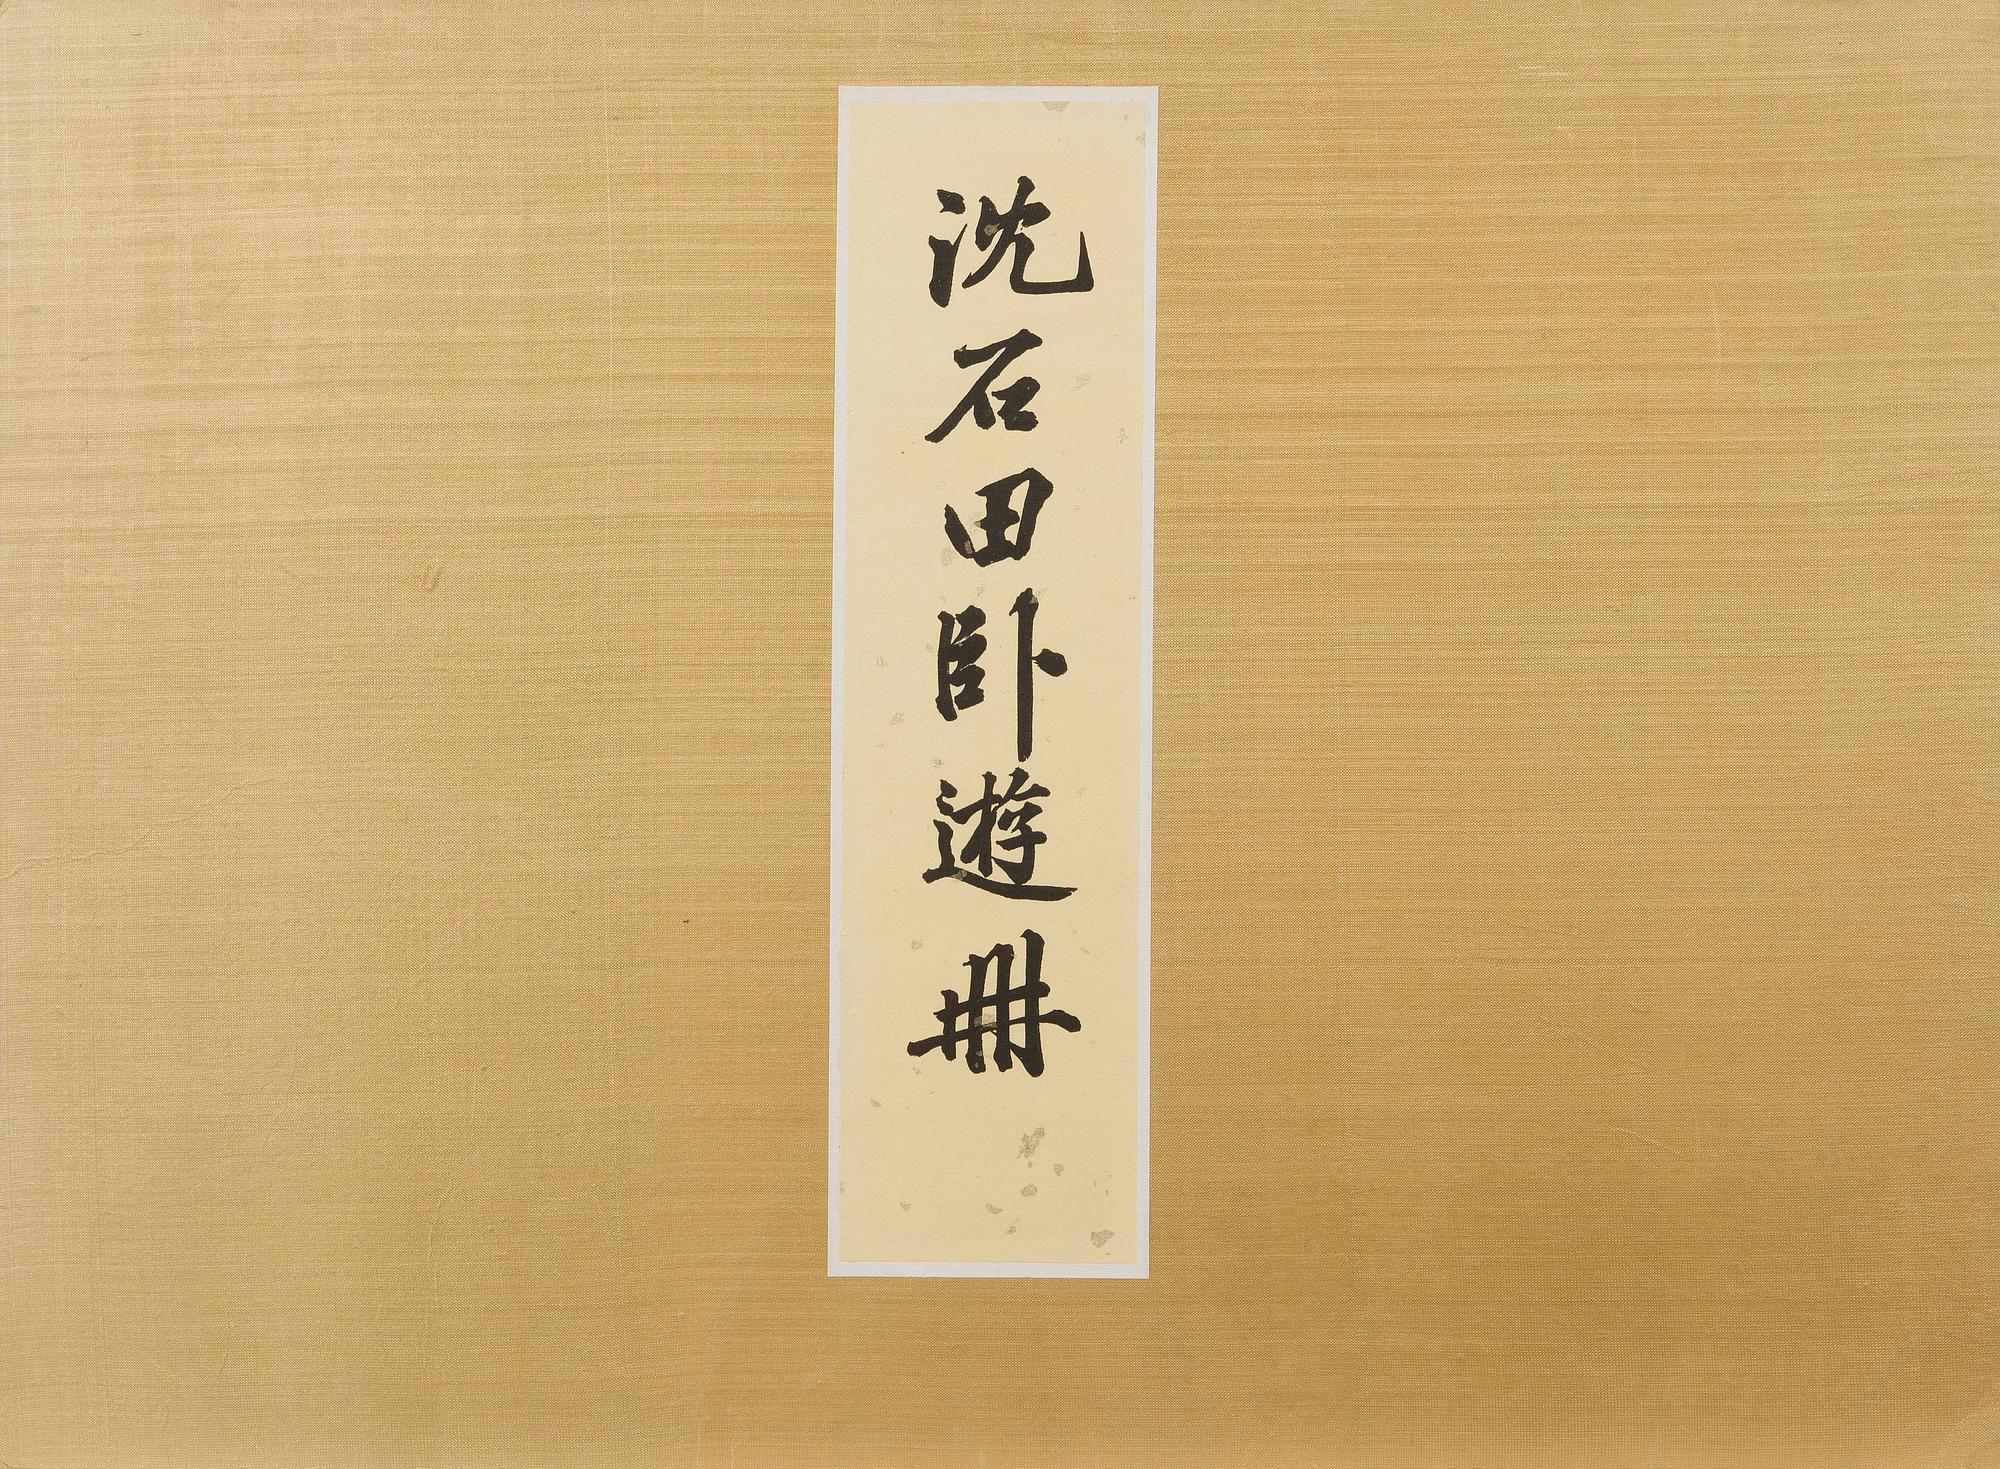 沈石田卧遊冊